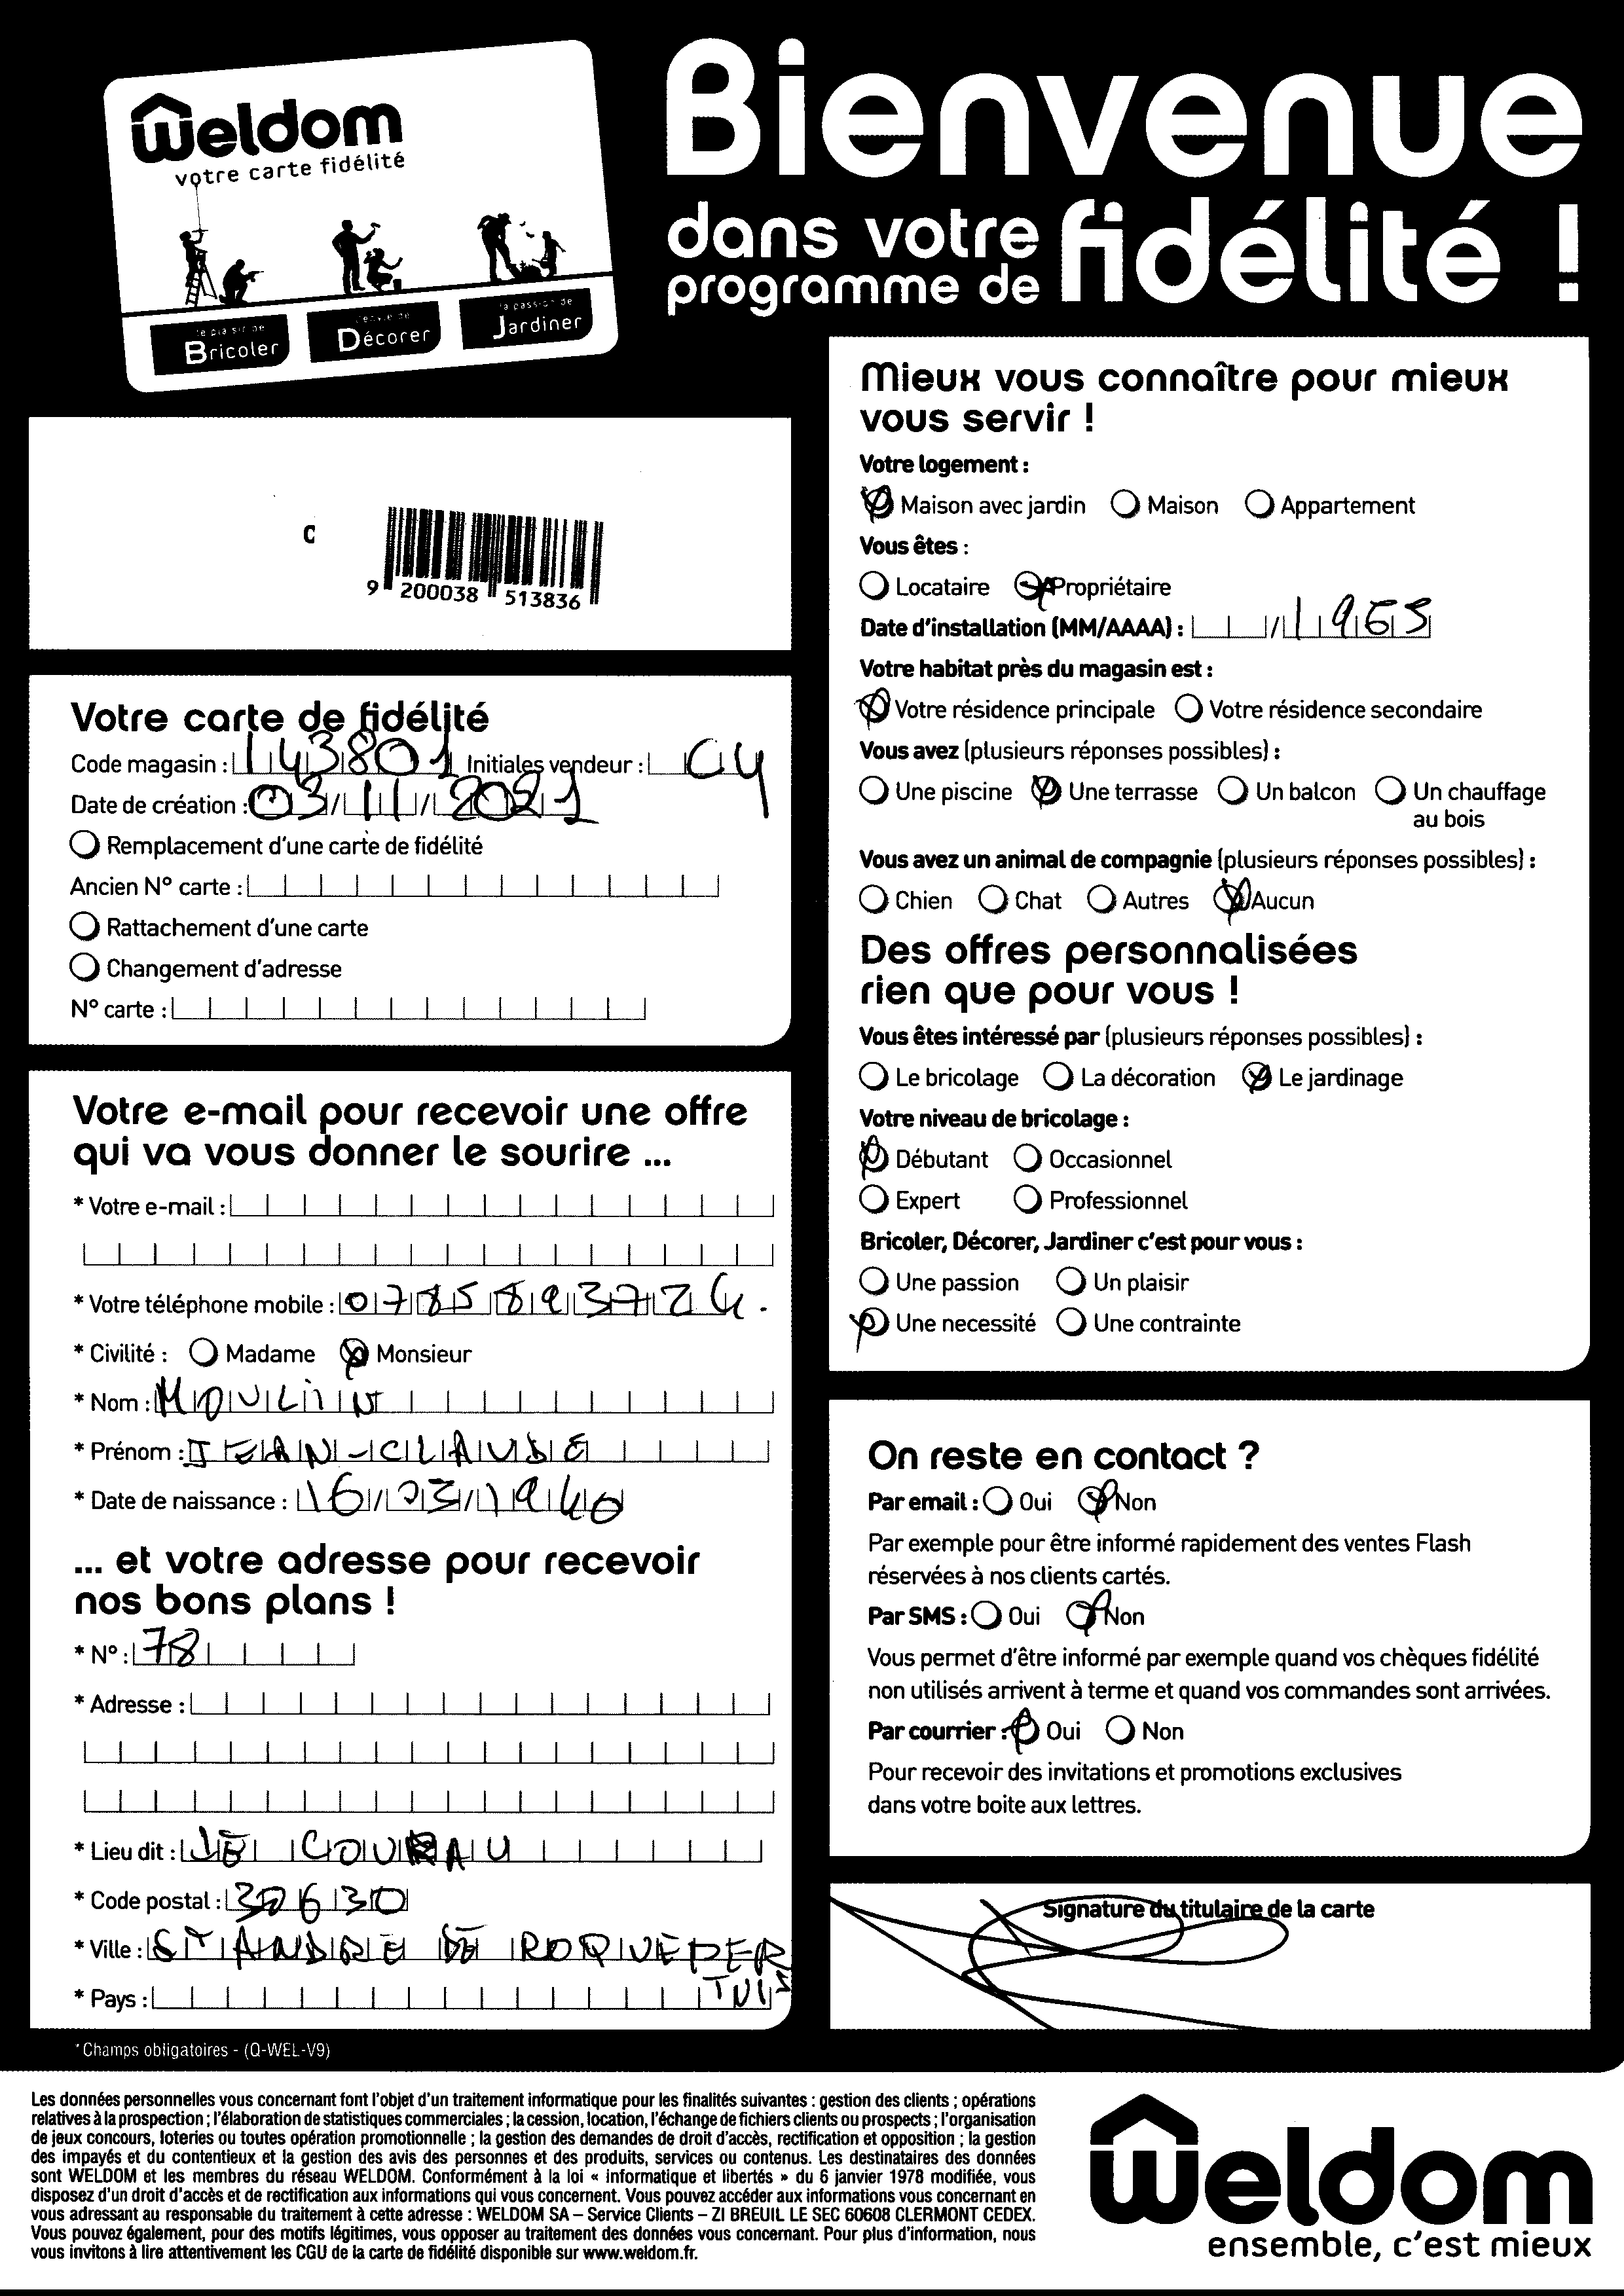 weldom
votre carte fidélité
le plaisir de
Bricoler
l'envie de
Décorer
la passion de
Jardiner
Bienvenue
dans votre
programme de
fidélité !
C
9 200038 513836
Votre carte de fidélité
Code magasin : 143801 Initiales vendeur : CY
Date de création : 03/11/2021
Remplacement d'une carte de fidélité
Ancien N° carte :
Rattachement d'une carte
Changement d'adresse
N° carte :
Votre e-mail pour recevoir une offre
qui va vous donner le sourire ...
* Votre e-mail :
* Votre téléphone mobile : 0785893724.
* Civilité : Madame Monsieur
* Nom : MOULIN
* Prénom : JEAN-CLAUDE
* Date de naissance : 16/03/1940
... et votre adresse pour recevoir
nos bons plans !
* N° : 78
* Adresse :
* Lieu dit : LE COURAU
* Code postal :
* Ville : ST ANDRE DE ROQUEPER
TUIS
* Pays :
*Champs obligatoires - (Q-WEL-V9)
Mieux vous connaître pour mieux
vous servir !
Votre logement :
Maison avec jardin Maison Appartement
Vous êtes :
Locataire Propriétaire
Date d'installation (MM/AAAA) : / 1965
Votre habitat près du magasin est :
Votre résidence principale Votre résidence secondaire
Vous avez (plusieurs réponses possibles) :
Une piscine Une terrasse Un balcon Un chauffage
au bois
Vous avez un animal de compagnie (plusieurs réponses possibles) :
Chien Chat Autres Aucun
Des offres personnalisées
rien que pour vous !
Vous êtes intéressé par (plusieurs réponses possibles) :
Le bricolage La décoration Le jardinage
Votre niveau de bricolage :
Débutant Occasionnel
Expert Professionnel
Bricoler, Décorer, Jardiner c'est pour vous :
Une passion Un plaisir
Une necessité Une contrainte
On reste en contact ?
Par email : Oui Non
Par exemple pour être informé rapidement des ventes Flash
réservées à nos clients cartés.
Par SMS : Oui Non
Vous permet d'être informé par exemple quand vos chèques fidélité
non utilisés arrivent à terme et quand vos commandes sont arrivées.
Par courrier : Oui Non
Pour recevoir des invitations et promotions exclusives
dans votre boite aux lettres.
Signature du titulaire de la carte
Les données personnelles vous concernant font l'objet d'un traitement informatique pour les finalités suivantes : gestion des clients ; opérations
relatives à la prospection ; l'élaboration de statistiques commerciales ; la cession, location, l'échange de fichiers clients ou prospects ; l'organisation
de jeux concours, loteries ou toutes opération promotionnelle ; la gestion des demandes de droit d'accès, rectification et opposition ; la gestion
des impayés et du contentieux et la gestion des avis des personnes et des produits, services ou contenus. Les destinataires des données
sont WELDOM et les membres du réseau WELDOM. Conformément à la loi « informatique et libertés » du 6 janvier 1978 modifiée, vous
disposez d'un droit d'accès et de rectification aux informations qui vous concernent. Vous pouvez accéder aux informations vous concernant en
vous adressant au responsable du traitement à cette adresse : WELDOM SA – Service Clients – ZI BREUIL LE SEC 60608 CLERMONT CEDEX.
Vous pouvez également, pour des motifs légitimes, vous opposer au traitement des données vous concernant. Pour plus d'information, nous
vous invitons à lire attentivement les CGU de la carte de fidélité disponible sur www.weldom.fr.
weldom
ensemble, c'est mieux